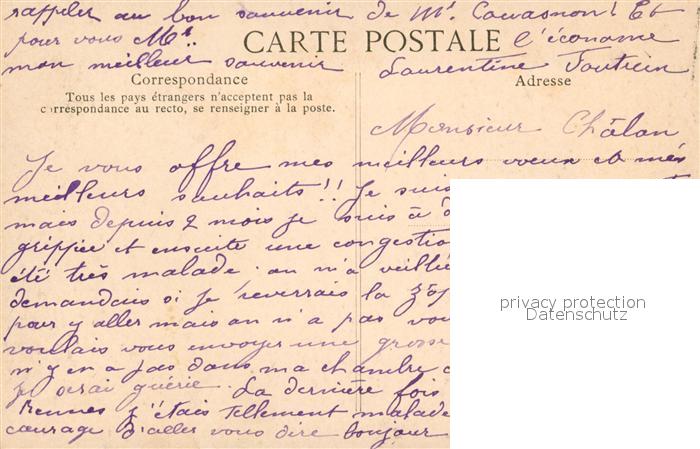 rappeler au bon souvenir de Mr Et
pour vous Mr CARTE POSTALE l'économe
mon meilleur souvenir Laurentine
Correspondance Adresse
Tous les pays étrangers n'acceptent pas la
correspondance au recto, se renseigner à la poste.
Monsieur Châlon
Je vous offre mes meilleurs voeux et mes
meilleurs souhaits!! Je suis
mais depuis 2 mois je suis à
grippée et ensuite une congestio
été très malade. on m'a veillé
demandais si je reverrais la
pour y aller mais on n'a pas vou
voulais vous envoyer une grosse
n'y en a pas dans ma chambre
je serai guérie. La dernière fois
Rennes j'étais tellement malade
courage d'aller vous dire bonjour
privacy protection
Datenschutz